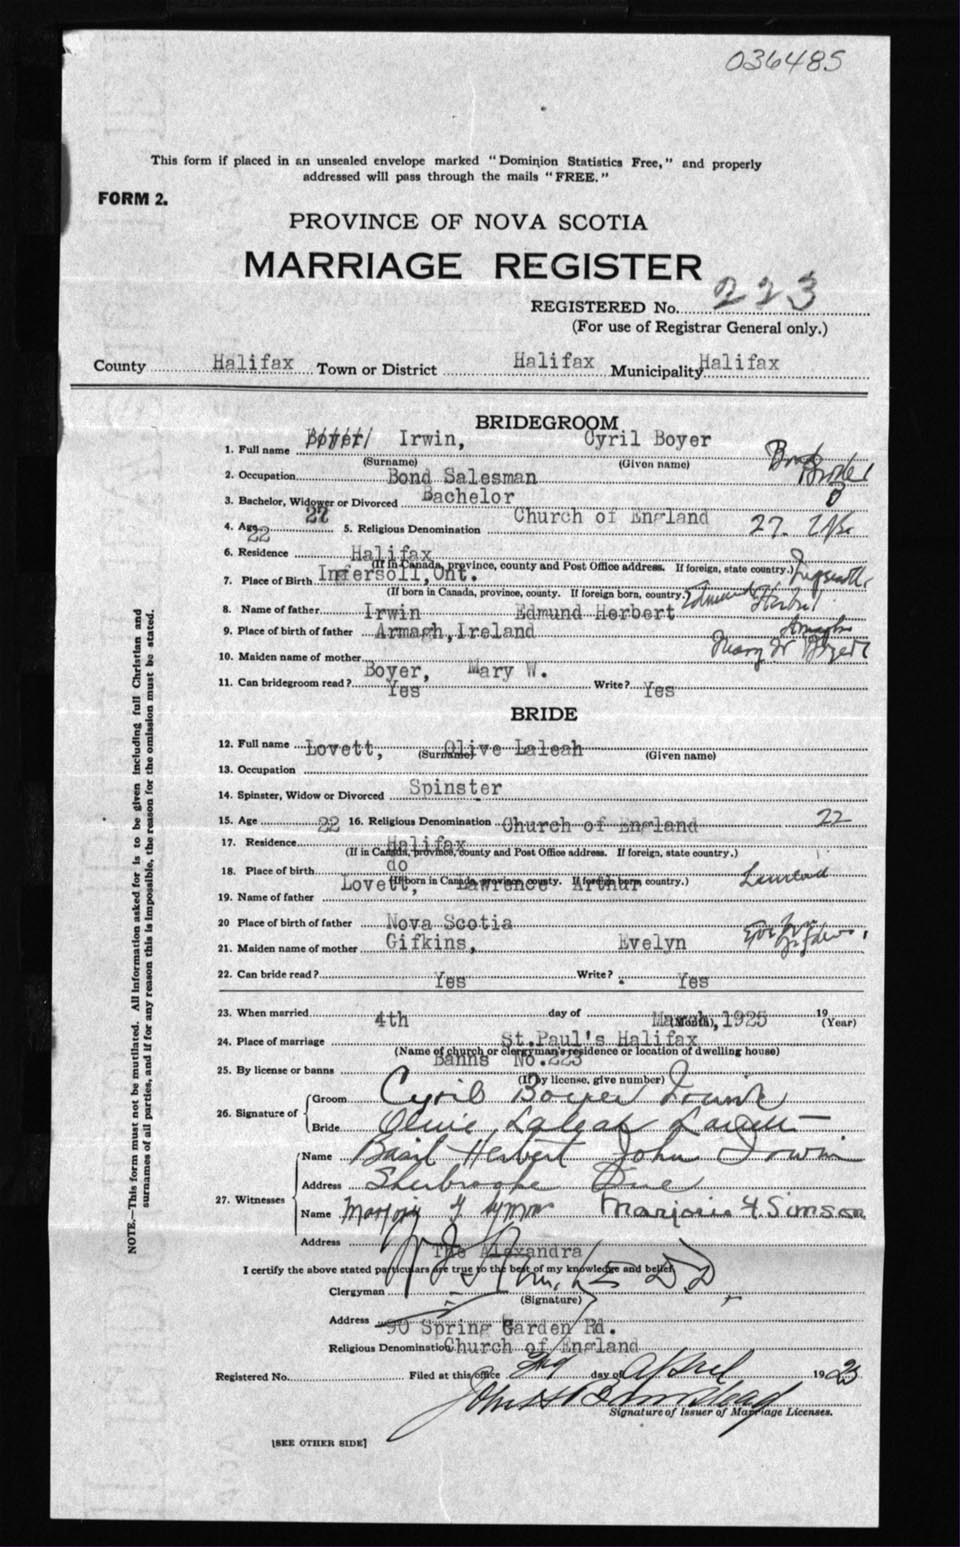 036485
This form if placed in an unsealed envelope marked "Dominion Statistics Free," and properly
addressed will pass through the mails "FREE."
FORM 2.
PROVINCE OF NOVA SCOTIA
MARRIAGE REGISTER
REGISTERED No. 223
(For use of Registrar General only.)
County Halifax Town or District Halifax Municipality Halifax
BRIDEGROOM
1. Full name Boyer Irwin, Cyril Boyer
(Surname) (Given name)
2. Occupation Bond Salesman Bond Broker
3. Bachelor, Widower or Divorced Bachelor
4. Age 27 22 5. Religious Denomination Church of England 27.
6. Residence Halifax
(If in Canada, province, county and Post Office address. If foreign, state country.)
7. Place of Birth Ingersoll, Ont.
(If born in Canada, province, county. If foreign born, country.)
8. Name of father Irwin Edmund Herbert Edmund Herbert
9. Place of birth of father Armagh, Ireland Armagh
10. Maiden name of mother Mary W Boyer
Boyer, Mary W.
11. Can bridegroom read? Yes Write? Yes
BRIDE
12. Full name Lovett, Olive Laleah
(Surname) (Given name)
13. Occupation
14. Spinster, Widow or Divorced Spinster
15. Age 22 16. Religious Denomination Church of England 22
17. Residence Halifax
(If in Canada, province, county and Post Office address. If foreign, state country.)
18. Place of birth do
(If born in Canada, province, county. If foreign born, country.)
19. Name of father Lovett, Lawrence Arthur
20 Place of birth of father Nova Scotia
21. Maiden name of mother Gifkins, Evelyn
22. Can bride read? Yes Write? Yes
23. When married 4th day of March, 1925 19
(Month), (Year)
24. Place of marriage St.Paul's Halifax
(Name of church or clergyman's residence or location of dwelling house)
25. By license or banns Banns No. 223
(If by license, give number)
26. Signature of Groom Cyril Boyer Irwin
Bride Olive Laleah Lovett
27. Witnesses
Name Basil Herbert John Irwin
Address Sherbrooke Ave
Name Marjorie F. Simson Marjorie F. Simson
Address The Alexandra
I certify the above stated particulars are true to the best of my knowledge and belief.
Clergyman D.D.
(Signature)
Address 90 Spring Garden Rd.
Religious Denomination Church of England
Registered No. Filed at this office 3rd day of April 1925
Signature of Issuer of Marriage Licenses.
[SEE OTHER SIDE]
NOTE.—This form must not be mutilated. All information asked for is to be given including full Christian and
surnames of all parties, and if for any reason this is impossible, the reason for the omission must be stated.